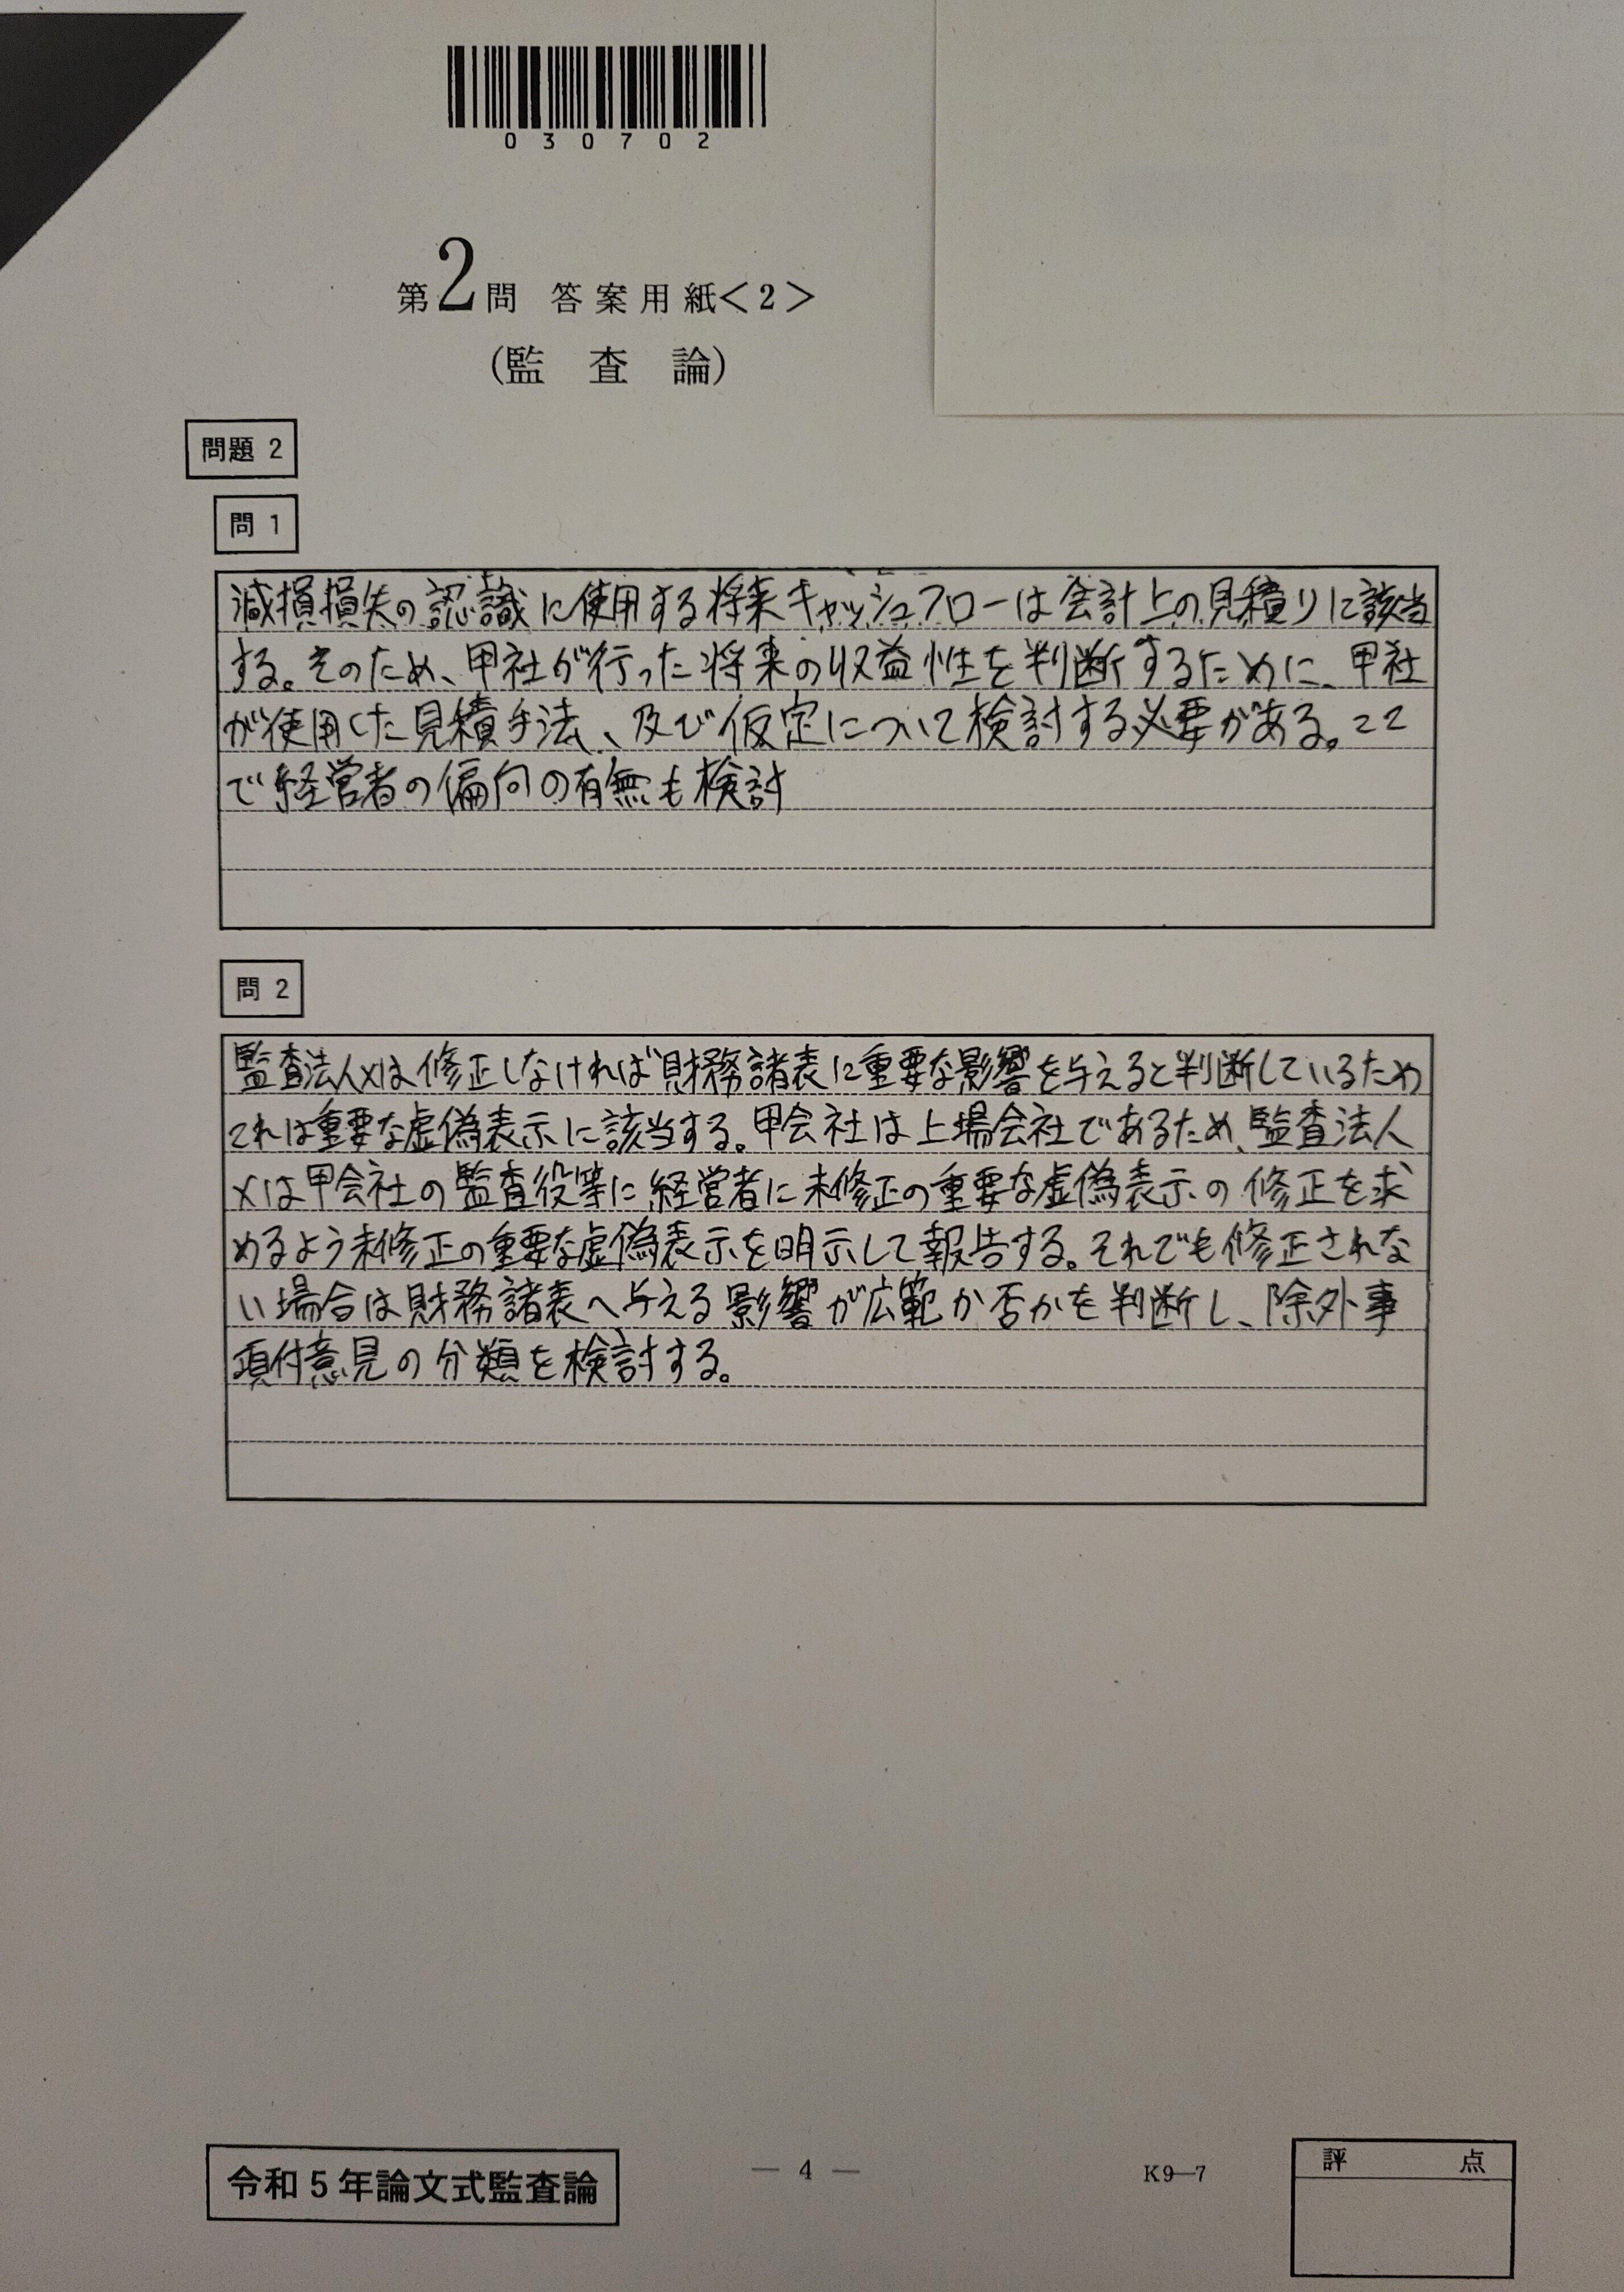 030702
第2問 答案用紙<2>
(監査論)
問題 2
問 1
減損損失の認識に使用する将来キャッシュフローは会計上の見積りに該当
する。そのため、甲社が行った将来の収益性を判断するために、甲社
が使用した見積手法、及び仮定について検討する必要がある。ここ
で経営者の偏向の有無も検討
問 2
監査法人Xは修正しなければ財務諸表に重要な影響を与えると判断しているため
これは重要な虚偽表示に該当する。甲会社は上場会社であるため、監査法人
Xは甲会社の監査役等に経営者に未修正の重要な虚偽表示の修正を求
めるよう未修正の重要な虚偽表示を明示して報告する。それでも修正されな
い場合は財務諸表へ与える影響が広範か否かを判断し、除外事
項付意見の分類を検討する。
令和5年論文式監査論
― 4 ―
K9―7
評点